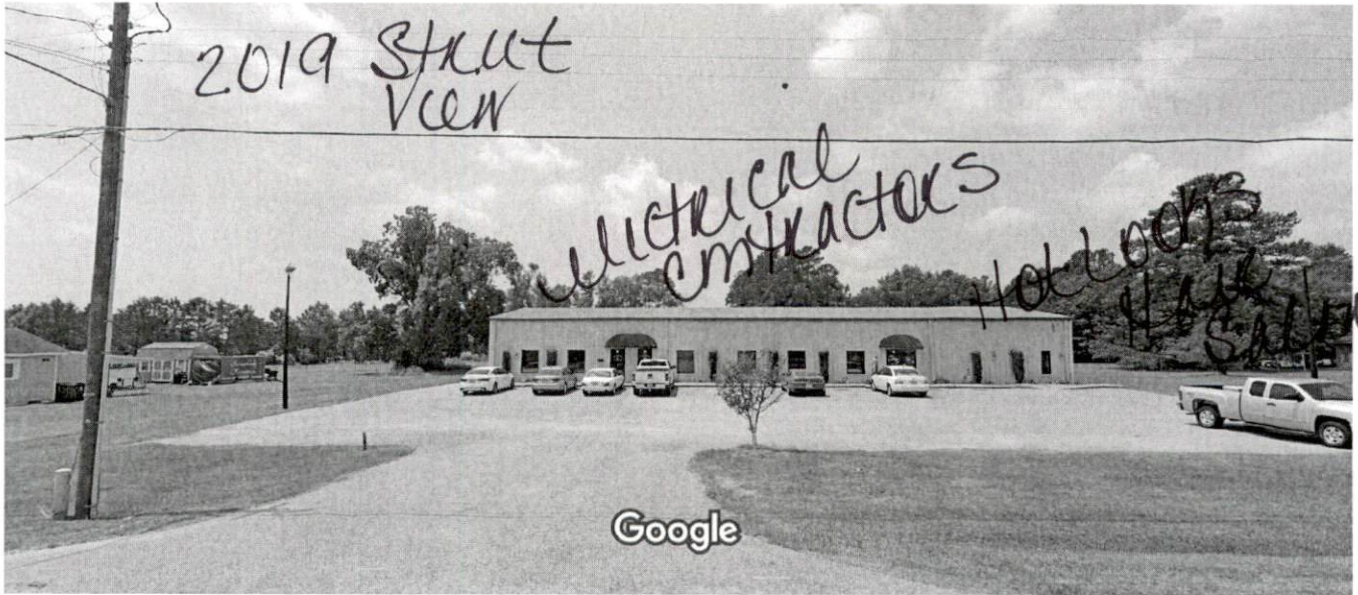 2019 Street
View
electrical
contractors
Hot Locks
Hair
Salon
Google